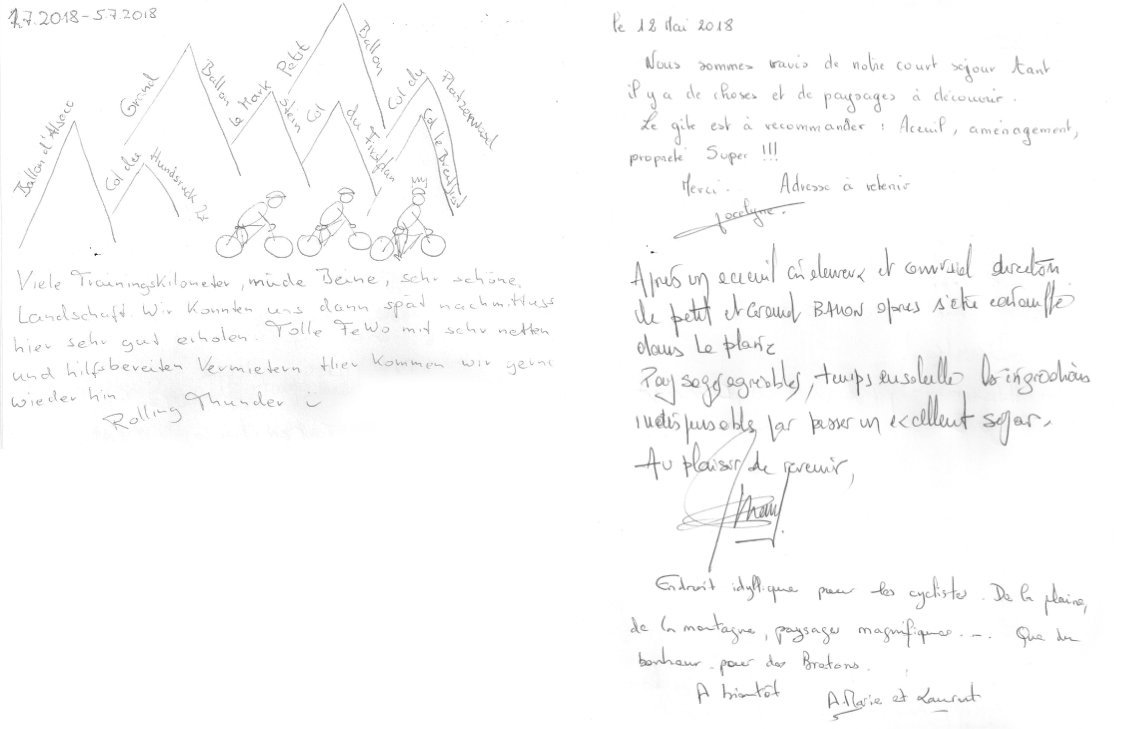 1.7.2018 - 5.7.2018
Ballon d'Alsace
Col des Hundsruck 2x
Grand Ballon
Le Markstein
Petit Ballon
Col du Firstplan
Col du Platzerwasel
Col le Breitfirst
Viele Trainingskilometer, müde Beine, sehr schöne
Landschaft. Wir konnten uns dann spät nachmittags
hier sehr gut erholen. Tolle FeWo mit sehr netten
und hilfsbereiten Vermietern. Hier kommen wir gerne
wieder hin
Rolling Thunder
le 12 Mai 2018
Nous sommes ravis de notre court séjour tant
il y a de choses et de paysages à découvrir.
Le gite est à recommander : Aceuil, aménagement,
propreté Super !!!
Merci. Adresse à retenir
Jocelyne.
Après un acceuil chaleureux et convivial direction
le petit et Grand BALLON apres s'être échauffé
dans la plaine
Paysages agréables, temps ensoleillé les ingrédients
indispensables par passer un excellent séjour.
Au plaisir de revenir,
Endroit idyllique pour les cyclistes. De la plaine,
de la montagne, paysages magnifiques... Que du
bonheur pour des Bretons.
A bientôt A.Marie et Laurent